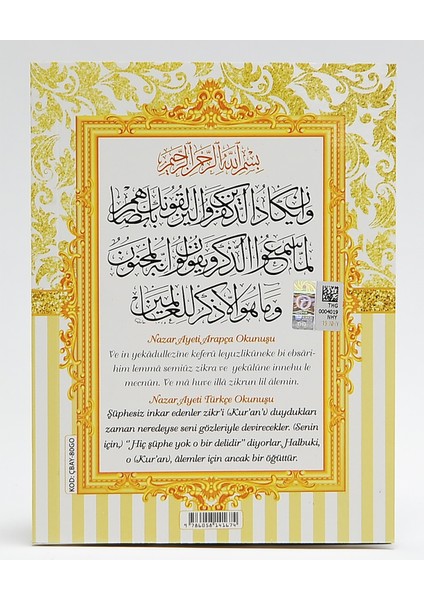 بسم الله الرحمن الرحيم
وان يكاد الذين كفروا ليزلقونك بابصارهم
لما سمعوا الذكر ويقولون انه لمجنون
وما هو الا ذكر للعالمين
Nazar Ayeti Arapça Okunuşu
Ve in yekâdullezîne keferû leyuzlikûneke bi ebsâri-
him lemmâ semiûz zikra ve yekûlûne innehu le
mecnûn. Ve mâ huve illâ zikrun lil âlemin.
Nazar Ayeti Türkçe Okunuşu
Şüphesiz inkar edenler zikr'i (Kur'an'ı) duydukları
zaman neredeyse seni gözleriyle devirecekler. (Senin
için,) "Hiç şüphe yok o bir delidir" diyorlar. Halbuki,
o (Kur'an), âlemler için ancak bir öğüttür.
KOD: ÇBAY-80GO
THG
0004019
NHY